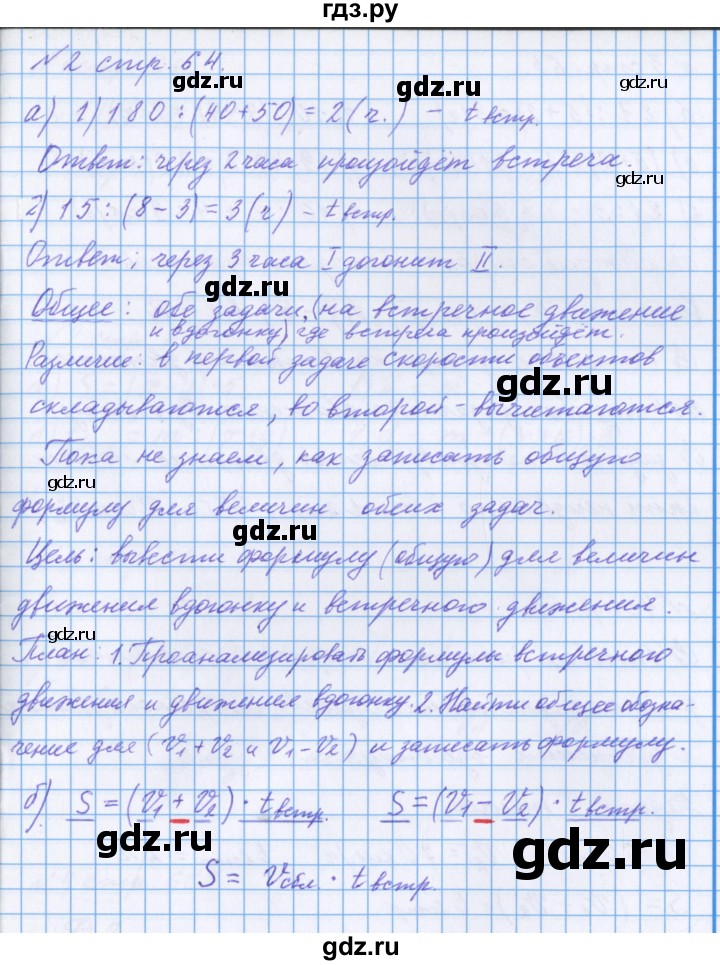 гдз.ру
№2 стр. 64.
gdz.ru
gdz.ru
а) 1) 180 : (40+50) = 2 (ч.) – t встр.
gdz.ru
Ответ: через 2 часа произойдёт встреча.
gdz.ru
2) 15 : (8-3) = 3 (ч) – t встр.
Ответ: через 3 часа I догонит II.
gdz.ru
Общее: обе задачи (на встречное движение
и вдогонку) где встреча произойдёт.
Различие: в первой задаче скорости объектов
gdz.ru
складываются, во второй – вычитаются.
Пока не знаем, как записать общую
gdz.ru
формулу для величин обеих задач.
gdz.ru
Цель: вывести формулу (общую) для величин
движения вдогонку и встречного движения.
gdz.ru
План: 1. Проанализировать формулы встречного
движения и движения вдогонку. 2. Найти общее обозна-
чение для (v₁+v₂ и v₁-v₂) и записать формулу.
б) S = (v₁ + v₂) · t встр. S = (v₁ – v₂) · t встр.
gdz.ru
gdz.ru
S = v сбл. · t встр.
gdz.ru